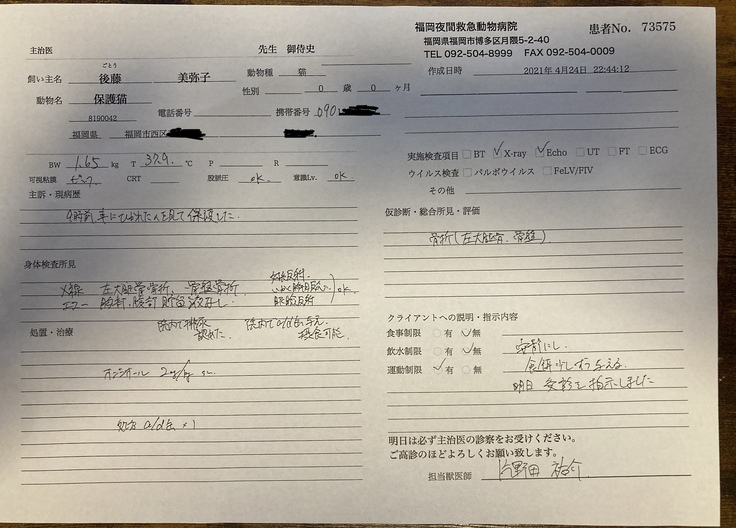 福岡夜間救急動物病院
患者No. 73575
福岡県福岡市博多区月隈5-2-40
TEL 092-504-8999 FAX 092-504-0009
作成日時 2021年 4月24日 22:44:12
主治医 先生 御侍史
ごとう
飼い主名 後藤 美弥子 動物種 猫
性別 0 歳 0 ヶ月
動物名 保護猫
電話番号 携帯番号 090
8190042
福岡県 福岡市西区
BW 1.65 kg T 37.9 ℃ P R
可視粘膜 ピンク CRT 股脈圧 ok 意識Lv. ok
主訴・現病歴
9時頃 車にひかれた
を見て保護した.
身体検査所見
X線 左大腿骨骨折、骨盤骨折
エコー 胸部、腹部 貯留液なし.
ok
処置・治療
院内で排尿 認めた.
院内でa/d缶与え 採食可能.
オンシオール 2mg/kg sc.
処方 a/d缶 ×1
実施検査項目 BT X-ray Echo UT FT ECG
ウイルス検査 パルボウイルス FeLV/FIV
その他
仮診断・総合所見・評価
骨折(左大腿骨、骨盤)
クライアントへの説明・指示内容
食事制限 有 無
飲水制限 有 無
運動制限 有 無
安静にし、
食餌少しずつ与える.
明日 受診を指示しました
明日は必ず主治医の診察をお受けください。
ご高診のほどよろしくお願い致します。
担当獣医師